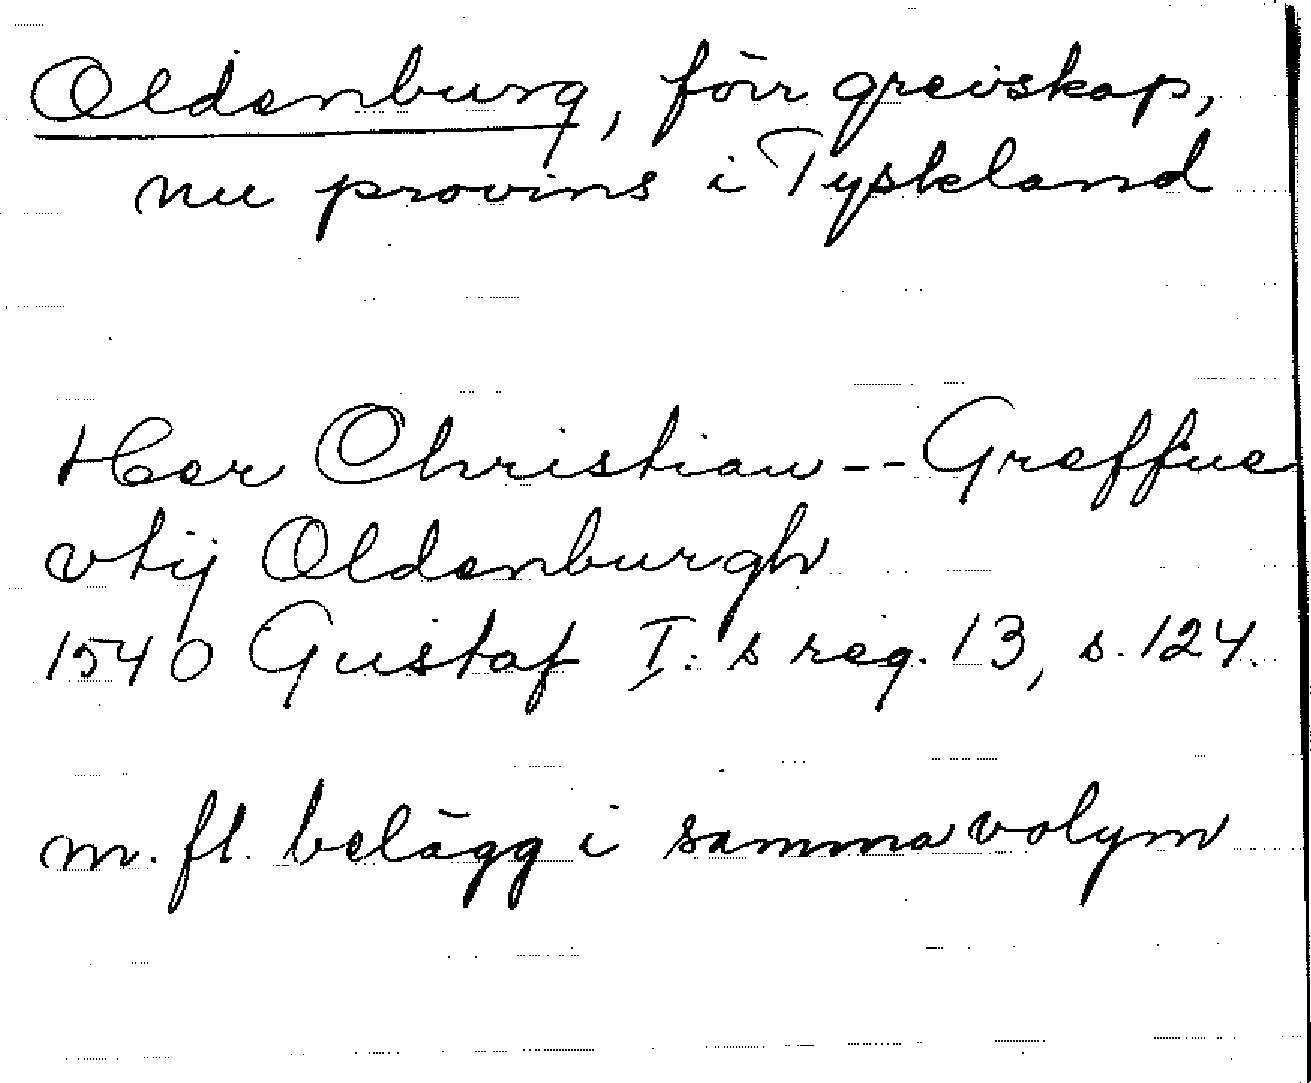 Oldenburg, förr grevskap,
nu provins i Tyskland
Her Christian -- Greffue
vtij Oldenburgh
1540 Gustaf I:s reg. 13, s. 124.
m. fl. belägg i samma volym